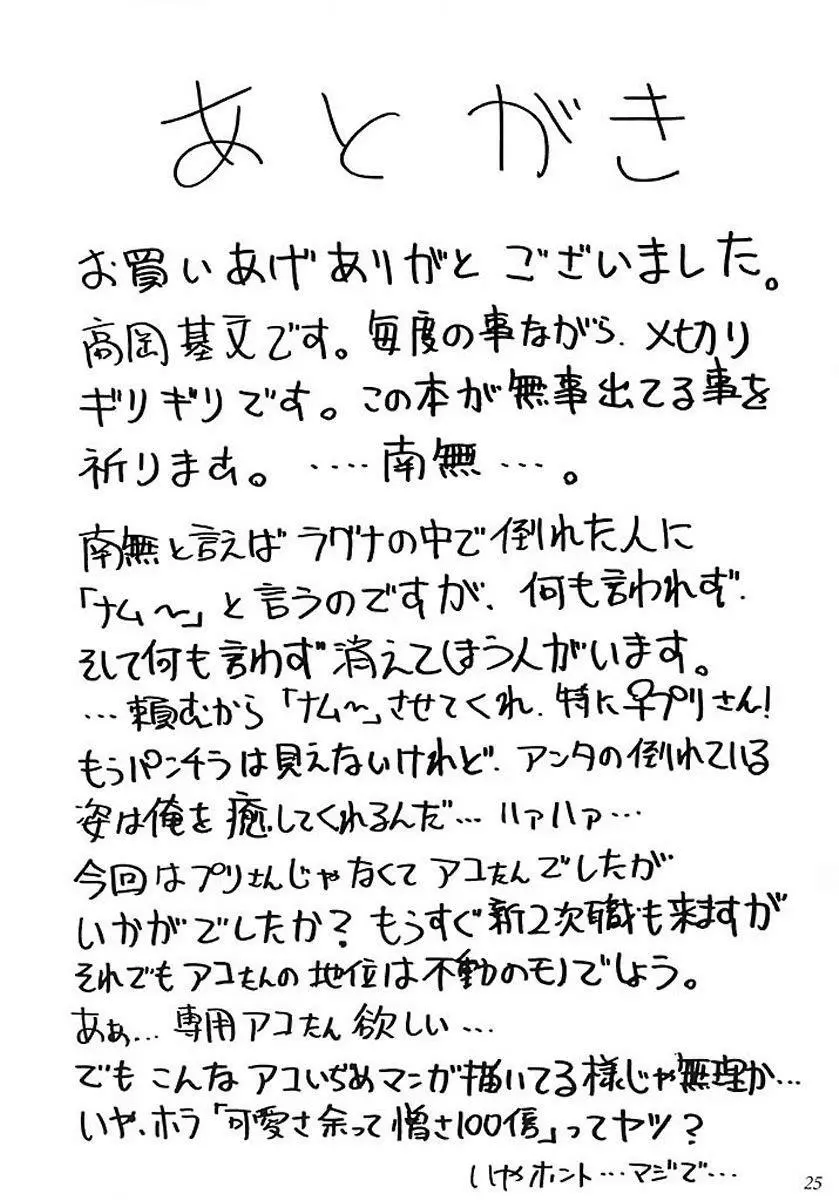 あとがき
お買いあげありがとございました。
高岡基文です。毎度の事ながら、〆切り
ギリギリです。この本が無事出てる事を
祈りまあ。‥‥南無‥‥。
南無と言えばラグナの中で倒れた人に
「ナム〜」と言うのですが、何も言われず、
そして何も言わず消えてしまう人がいます。
…頼むから「ナム〜」させてくれ、特に♀プリさん!
もうパンチラは見えないけれど、アンタの倒れている
姿は俺を癒してくれるんだ…ハァハァ…
今回はプリさんじゃなくてアコたんでしたが
いかがでしたか?もうすぐ新2次職も来ますが
それでもアコたんの地位は不動のモノでしょう。
あぁ…専用アコたん欲しい…
でもこんなアコいぢめマンガ描いてる様じゃ無理か…
いや、ホラ「可愛さ余って憎さ100倍」ってヤツ?
いやホント…マジで…
25